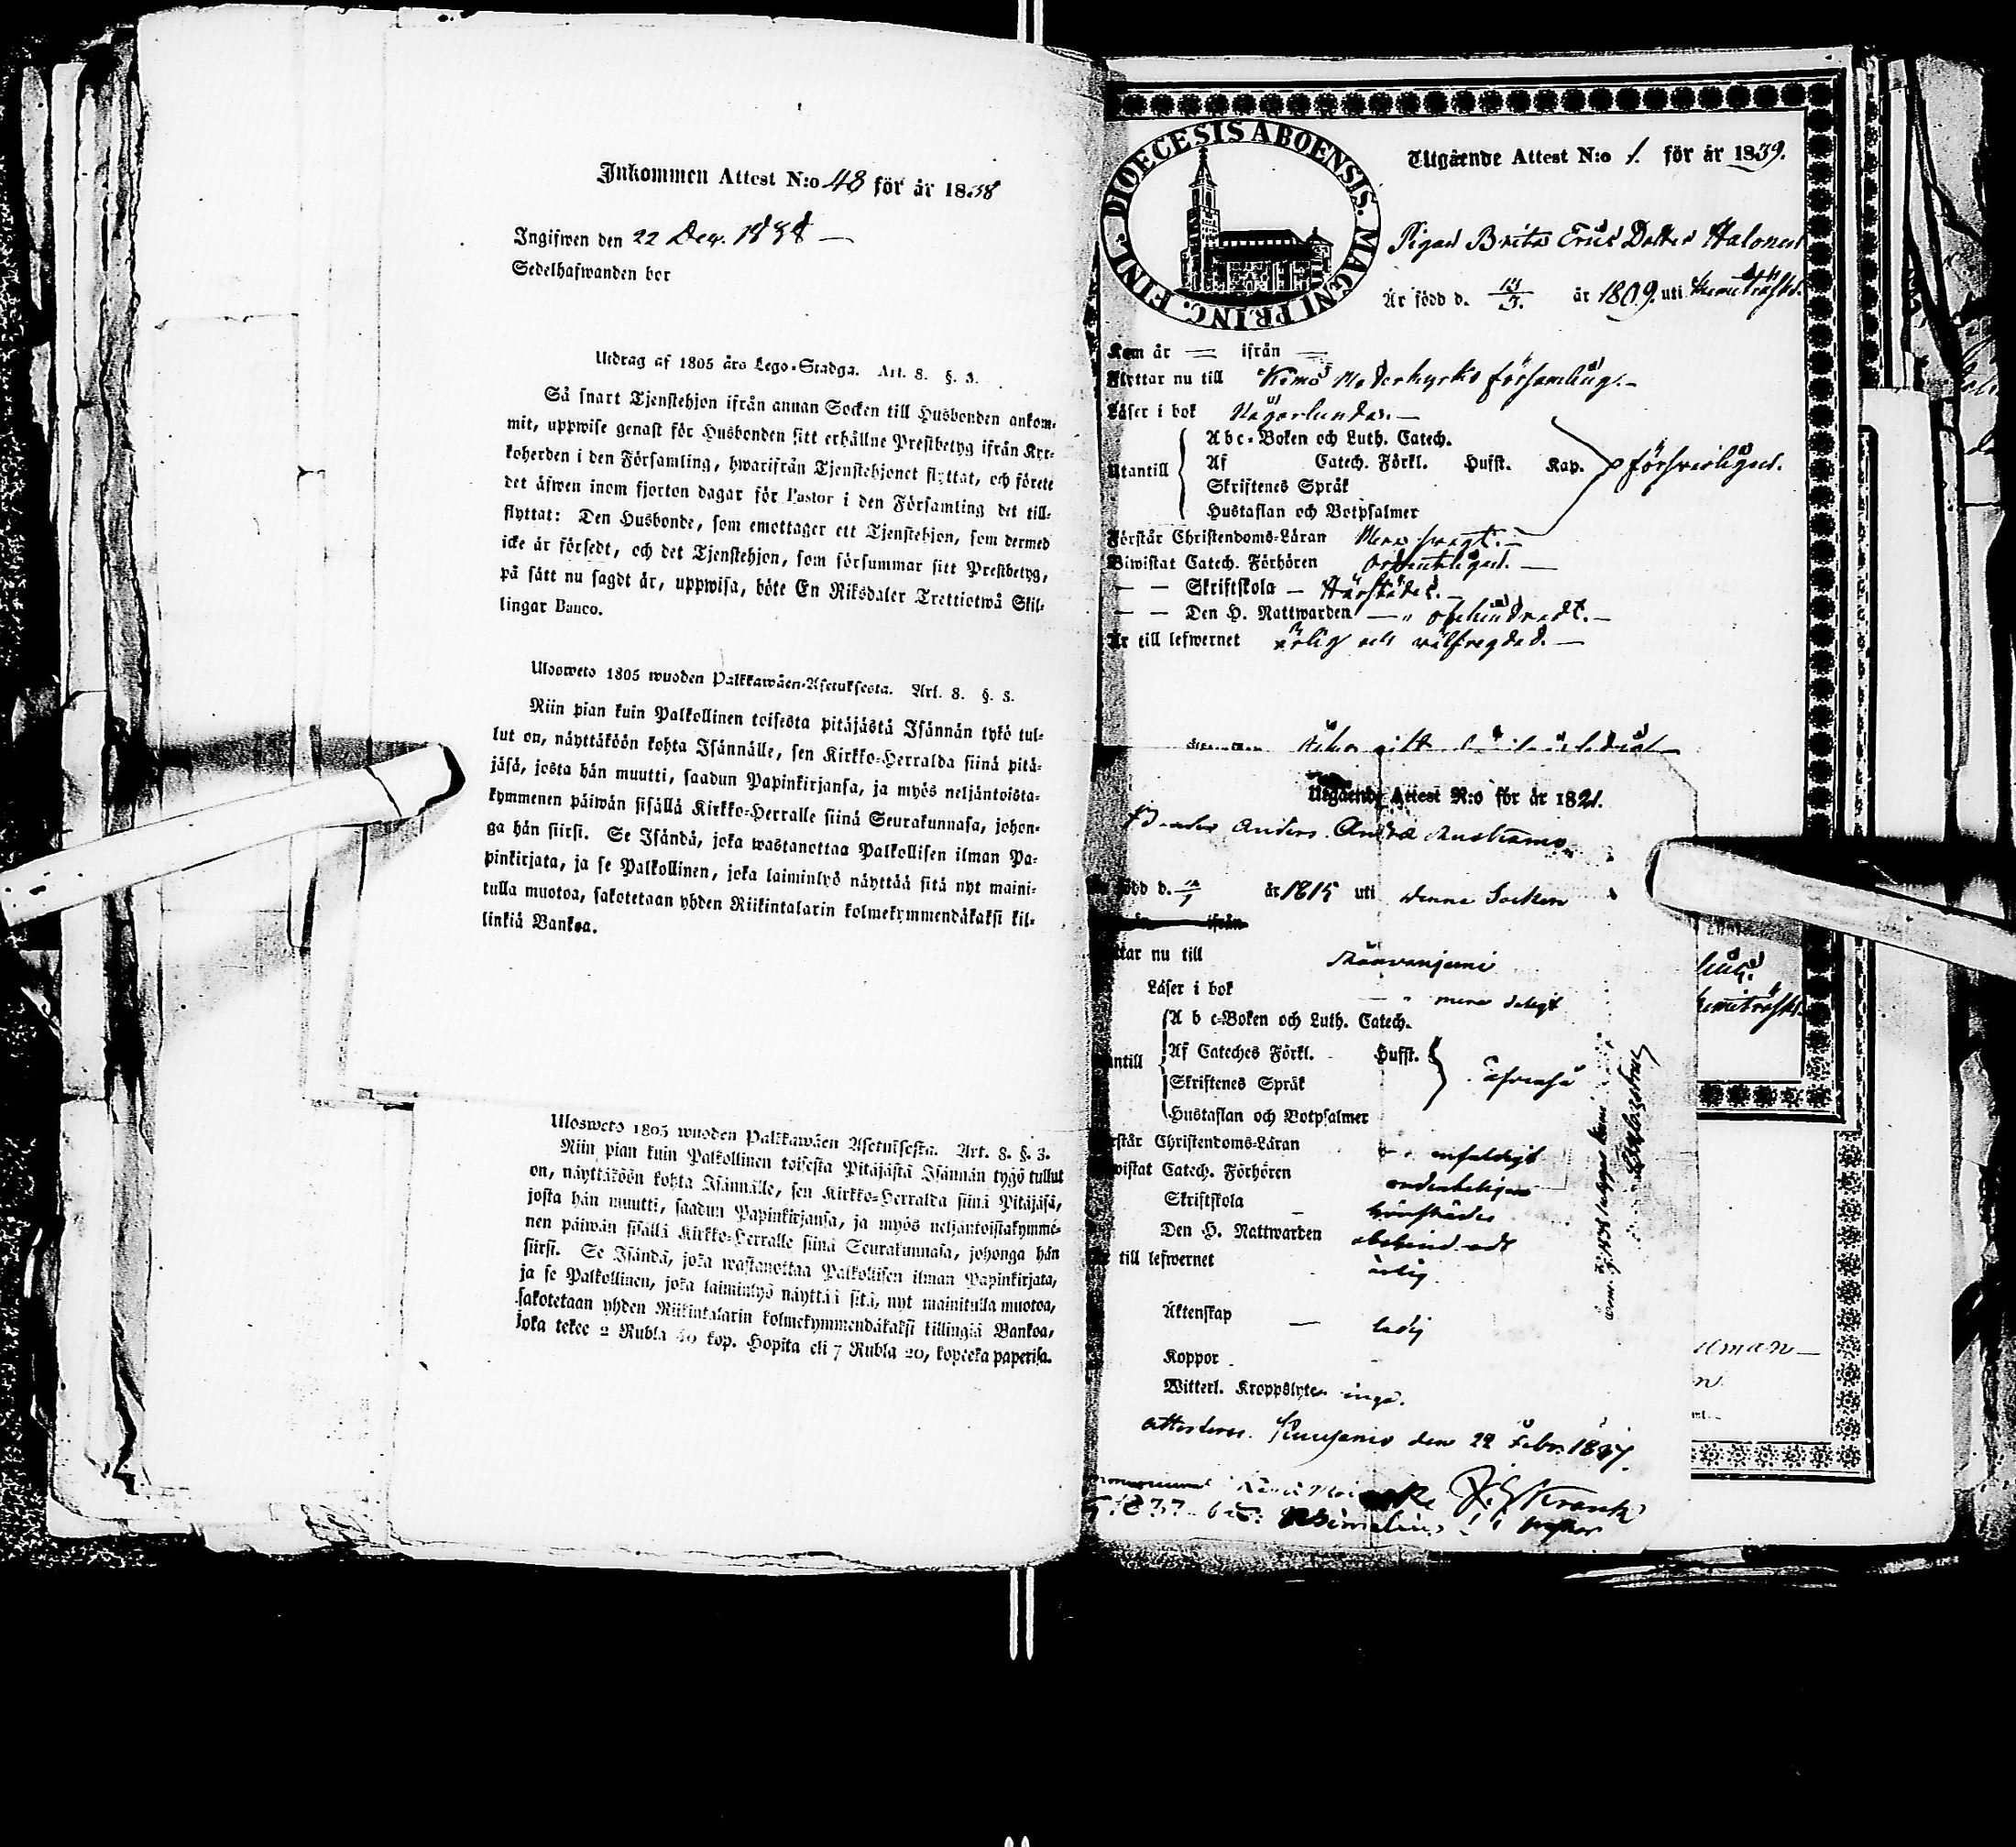 Inkommen Attest N:o 48 för år 1838
Ingifwen den 22 Dec. 1838 —
Sedelhafwanden bor
Utdrag af 1805 års Lego-Stadga. Art. 8. §. 3.
Så snart Tjenstehjon ifrån annan Socken till Husbonden ankom-
mit, uppwise genast för Husbonden sitt erhållne Prestbetyg ifrån Kyr-
koherden i den Församling, hwarifrån Tjenstehjonet flyttat, och förete
det äfwen inom fjorton dagar för Pastor i den Församling det till-
flyttat: Den Husbonde, som emottager ett Tjenstehjon, som dermed
icke är försedt, och det Tjenstehjon, som försummar sitt Prestbetyg,
på sätt nu sagdt är, uppwisa, böte En Riksdaler Trettiotwå Skil-
lingar Banco.
Ulosweto 1805 wuoden Palkkawäen-Asetuksesta. Art. 8. §. 3.
Niin pian kuin Palkollinen toisesta pitäjästä Isännän tykö tul-
lut on, näyttäköön kohta Isännälle, sen Kirkko-Herralda siinä pitä-
jäsä, josta hän muutti, saadun Papinkirjansa, ja myös neljäntoista-
kymmenen päiwän sisällä Kirkko-Herralle siinä Seurakunnasa, johon-
ga hän siirsi. Se Isändä, joka wastanottaa Palkollisen ilman Pa-
pinkirjata, ja se Palkollinen, joka laiminlyö näyttää sitä nyt maini-
tulla muotoa, sakotetaan yhden Riikintalarin kolmekymmendäkaksi kil-
linkiä Bankoa.
Ulosweto 1805 wuoden Palkkawäen Asetuksesta. Art. 8. §. 3.
Niin pian kuin Palkollinen toisesta Pitäjästä Isännän tygö tullut
on, näyttäköön kohta Isännälle, sen Kirkko-Herralda siinä Pitäjäsä,
josta hän muutti, saadun Papinkirjansa, ja myös neljäntoistakymme-
nen päiwän sisällä Kirkko-Herralle siinä Seurakunnasa, johonga hän
siirsi. Se Isändä, joka wastanottaa Palkollisen ilman Papinkirjata,
ja se Palkollinen, joka laiminlyö näyttää sitä, nyt mainitulla muotoa,
sakotetaan yhden Riikintalarin kolmekymmendäkaksi killingiä Bankoa,
joka tekee 2 Rubla 40 kop. Hopita eli 7 Rubla 20, kopeeka paperisa.
DIOECESIS ABOENSIS. MAGNI PRINC. FINL.
Utgående Attest N:o 1. för år 1839.
Pigan Brita Erics Dotter Halonen
Är född d. 13/3. år 1809. uti Kemiträsk.
Kom år — ifrån —
Flyttar nu till Kemi Moderkyrko församling. —
Läser i bok Någorlunda. —
Utantill
Abc-Boken och Luth. Catech.
Af Catech. Förkl. Husst. Kap. försvarligen.
Skriftenes Språk
Hustaflan och Botpsalmer
Förstår Christendoms-Läran Mera svagt. —
Biwistat Catech. Förhören Ordentligen. —
— — Skriftskola — Härstädes. —
— — Den H. Nattwarden — obehindradt. —
Är till lefwernet ärlig och välfregdad. —
Utgående Attest N:o för år 1821.
Anders
född d. år 1815 uti denna Socken
ifrån
ttar nu till Råavanjemi
Läser i bok — mera
A b c-Boken och Luth. Catech.
ntill Af Cateches Förkl. Husst.
Skriftenes Språk
Hustaflan och Botpsalmer
rstår Christendoms-Läran enfaldigt
wistat Catech. Förhören ordenteligen
Skriftskola — härstädes
Den H. Nattwarden obehindradt
till lefwernet ärlig
Äktenskap — ledig
Koppor
Witterl. Kroppslyte inga.
Attesteras. Kuusamo den 22 Febr. 1837.